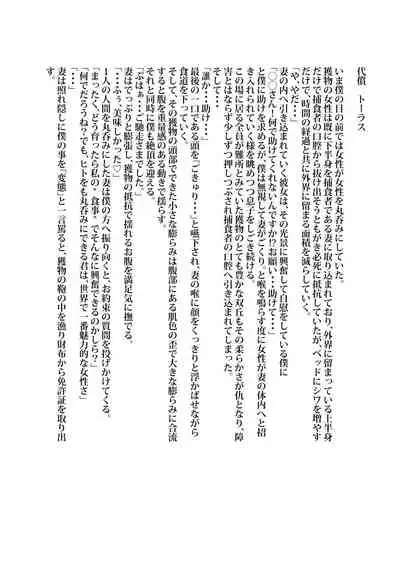 代償　トーラス
いま僕の目の前では女性が女性を丸呑みにしていた。
獲物の女性は既に下半身を捕食者である妻に取り込まれており、外界に留まっている上半身
だけで捕食者の口腔から抜け出そうともがき必死に抵抗していたが、ベッドにシワを増やす
だけで、時間の経過と共に外界に留まる面積を減らしていく。
「や、やだ・・・」
妻の内へ引き込まれていく彼女は、その光景に興奮して自慰をしている僕に
「〇〇さん！何で助けてくれないんですか!?お願い・・・助けて・・・」
と僕に助けを求めるが、僕は無視して妻がごくり、と喉を鳴らす度に女性が妻の体内へと招
き入れられていく様を眺めつつ息子をしごき続ける。
この場に居る全員が難所とみていた獲物のとても豊かな双丘もその柔らかさが仇となり、障
害とはならず少しずつ押しつぶされ捕食者の口腔へ引き込まれてしまった。
そして・・・
「誰か・・・助け・・・」
最後の一口である頭を「ごきゅり・・・」と嚥下され、妻の喉に顔をくっきりと浮かばせながら
食道を下っていく。
そして、その獲物の頭部でできた小さな膨らみは腹部にある肌色の歪で大きな膨らみに合流
すると腹を重量感のある動きで揺らす。
それと同時に僕も絶頂を迎える。
「ぷはぁ・・・ご馳走さまでした。」
妻はでっぷりと膨張し、獲物の抵抗で揺れるお腹を満足気に撫でる。
「・・・ふぅ、美味しかった♡」
１人の人間を丸呑みにした妻は僕の方へ振り向くと、お約束の質問を投げかけてくる。
「まったく、どう育ったら私の〝食事〟でそんなに興奮できるのかしら？」
「何でだろうね？でも、ヒトをも丸呑みにできる君は、世界で一番魅力的な女性さ」
「・・・」
妻は照れ隠しに僕の事を「変態」と一言罵ると、獲物の鞄の中を漁り財布から免許証を取り出
す。